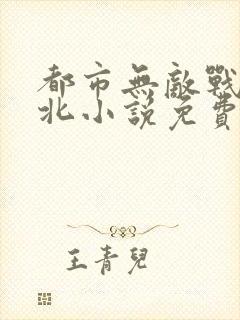 都市無敵戰
北小說免費
王青兒